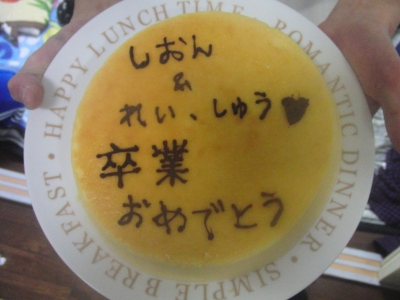 しおん
&
れい、しゅう♥
卒業
おめでとう
HAPPY LUNCH TIME • ROMANTIC DINNER • SIMPLE BREAKFAST •